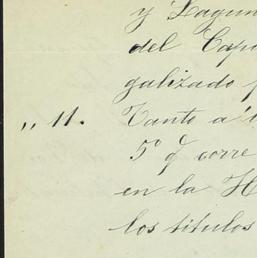 y Lagun
del Cap
galizado p
„ 11. Tanto a
5º y corre
en la H
los titulos